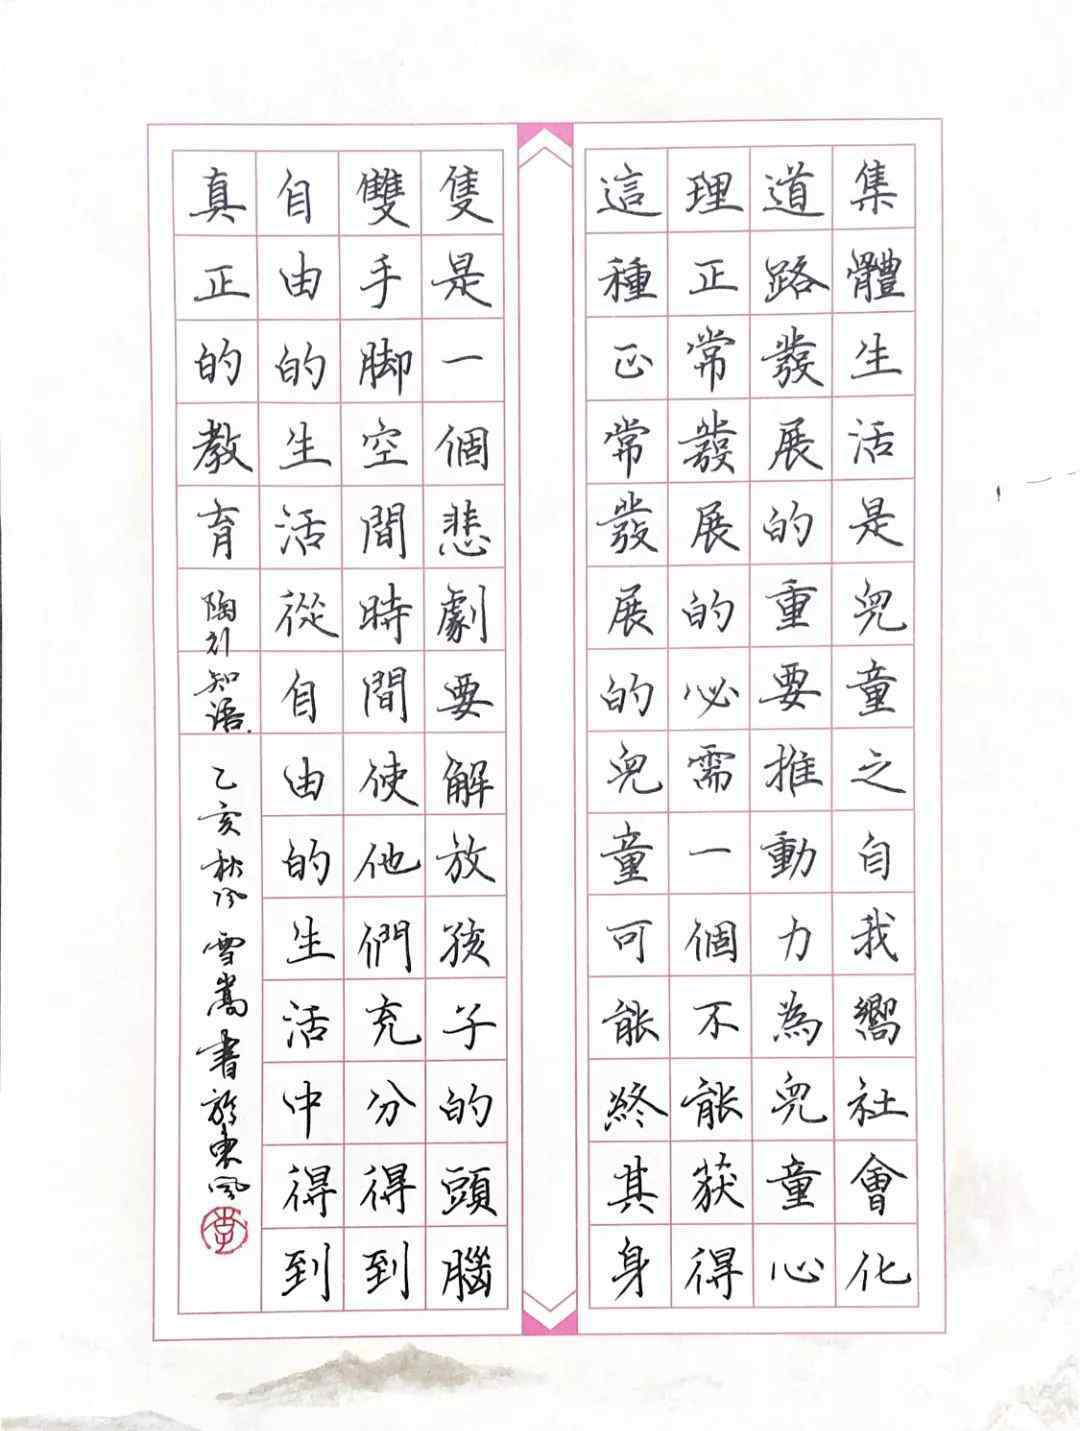 集體生活是兒童之自我嚮社會化
道路發展的重要推動力為兒童心
理正常發展的必需一個不能获得
這種正常發展的兒童可能終其身
隻是一個悲劇要解放孩子的頭腦
雙手脚空間時間使他們充分得到
自由的生活從自由的生活中得到
真正的教育 陶行知语 乙亥秋冯雪嵩書於東風